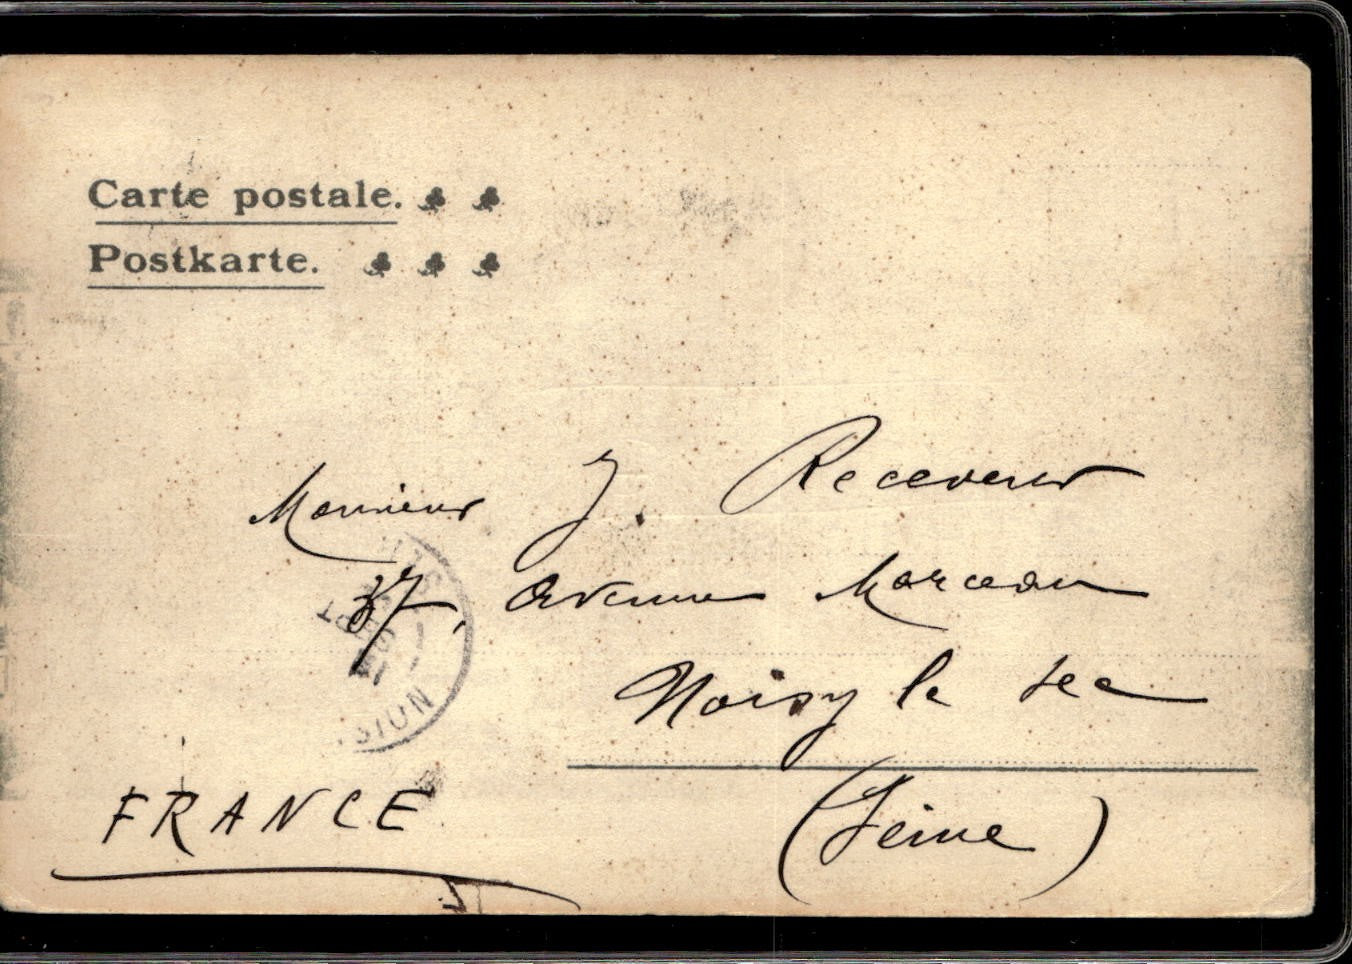 Carte postale.
Postkarte.
Monsieur J. Receveur
37, Avenue Marceau
Noisy le Sec
(Seine)
FRANCE
SEPT
SION